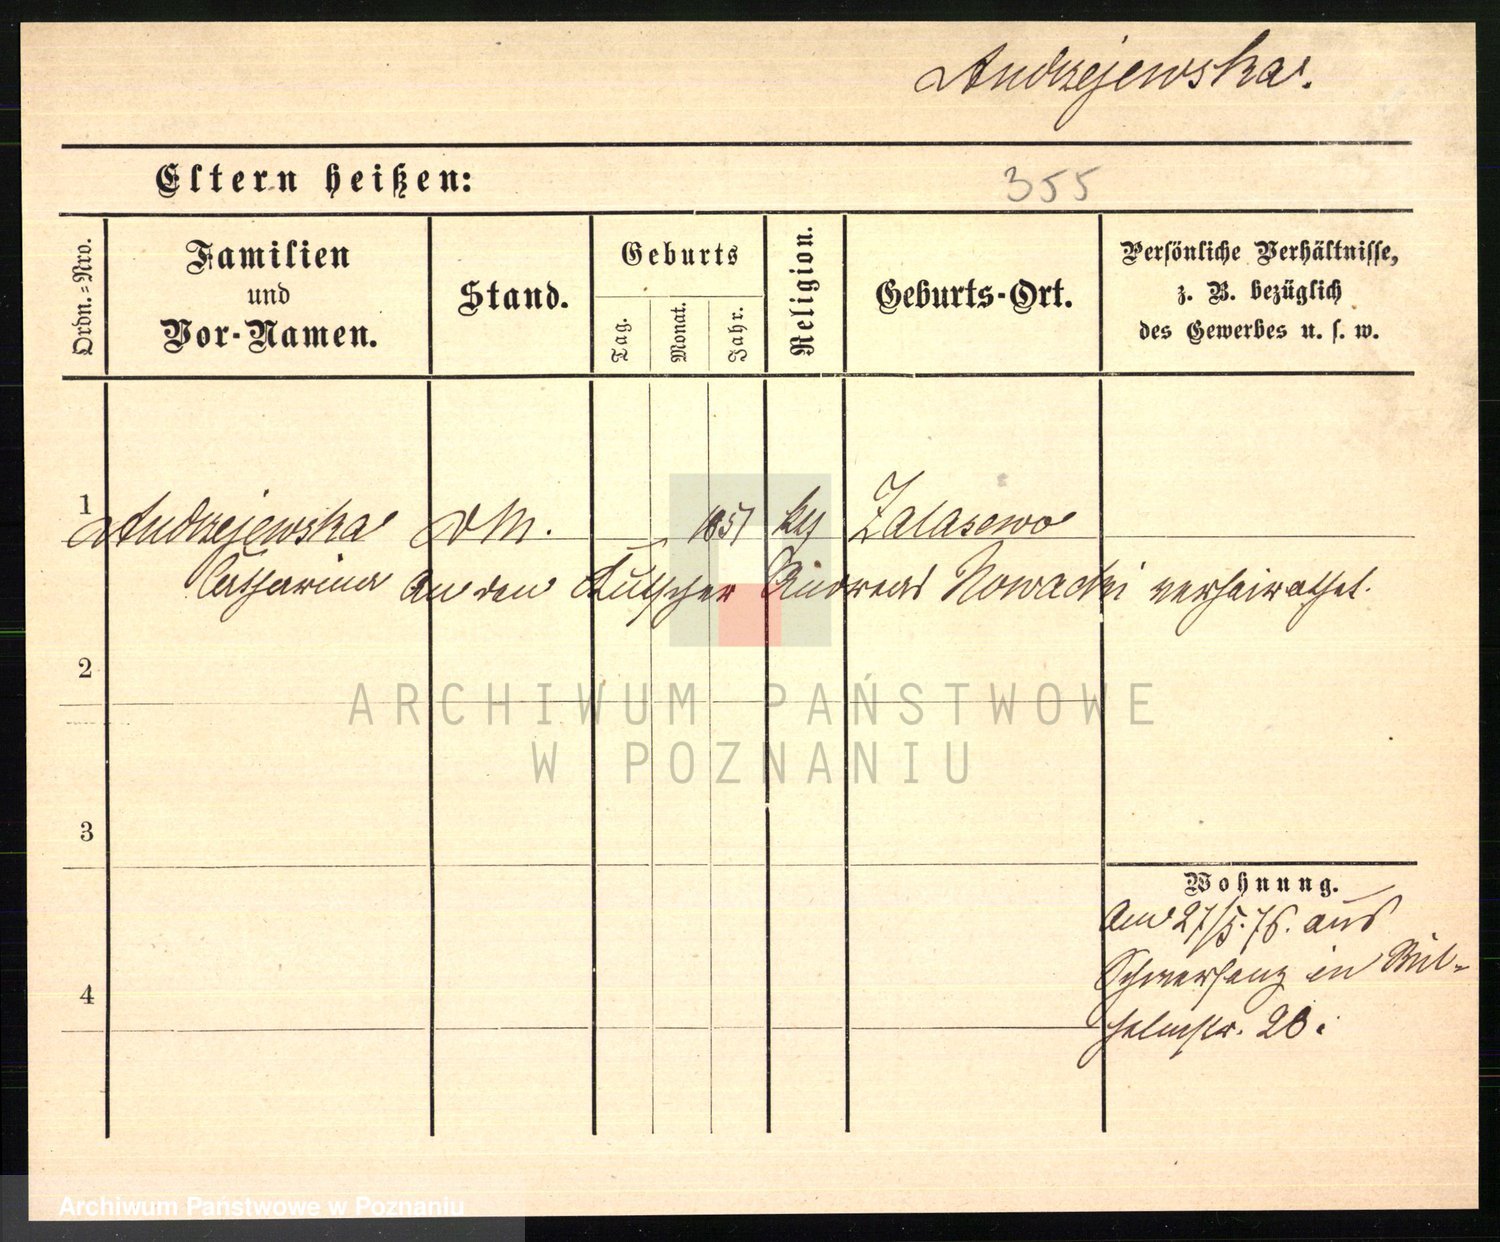 Andrzejewska.
Eltern heißen:
355
Ordn.=Nro.
Familien
und
Vor-Namen.
Stand.
Geburts
Tag.
Monat.
Jahr.
Religion.
Geburts-Ort.
Persönliche Verhältnisse,
z. B. bezüglich
des Gewerbes u. s. w.
1
Andrzejewska DM. 1851 kth Zalasewo
Catharina An den Kutscher Andreas Nowacki verheirathet.
2
ARCHIWUM PAŃSTWOWE
W POZNANIU
3
Wohnung.
Am 27/5.76. aus
Schwersenz in Wil-
helmstr. 26.
4
Archiwum Państwowe w Poznaniu